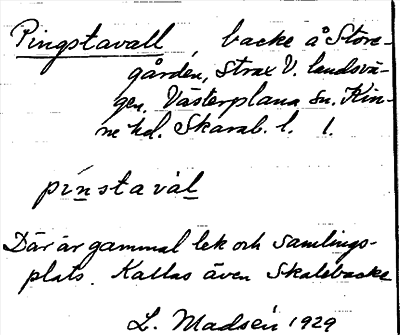 Pingstavall, backe å Store-
gården, strax V. landsvä-
gen, Västerplana sn. Kin-
ne hd. Skarab. l. 1.
pínstavàl
Där är gammal lek och samlings-
plats. Kallas även Skalebacke
L. Madsén 1929